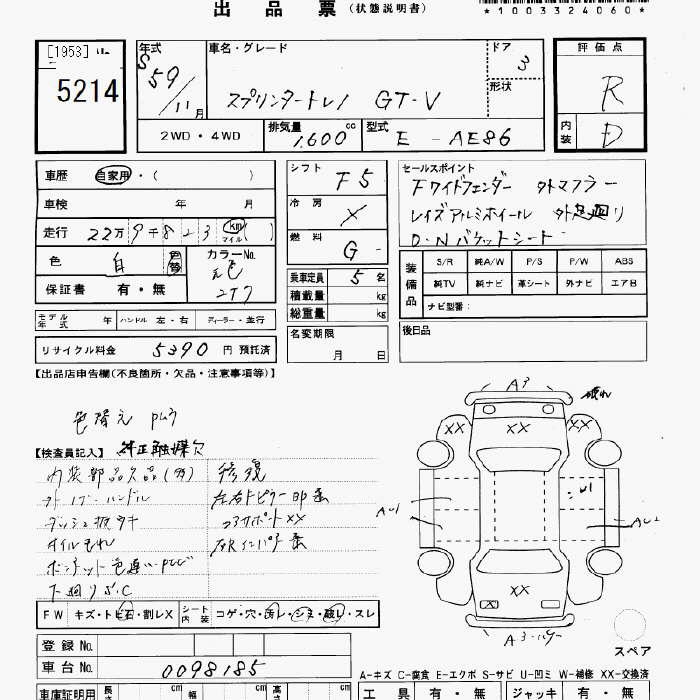 出品票 (状態説明書)
*1003324060*
[1953]
5214
年式
S59/11月
車名・グレード
スプリンタートレノ GT-V
ドア
3
形状
評価点
R
内装
D
2WD・4WD
排気量
1,600cc
型式
E-AE86
車歴 自家用・( )
車検 年 月
走行 22万9千823 (km マイル)
色 白 色替
カラーNo.
元色
2T7
保証書 有・無
シフト
F5
冷房
×
燃料
G-
乗車定員 5名
積載量 kg
総重量 kg
名変期限
月 日
セールスポイント
Fワイドフェンダー 外マフラー
レイズアルミホイール 外足廻り
D・Nバケットシート
装備品
S/R 純A/W P/S P/W ABS
純TV 純ナビ 革シート 外ナビ エアB
ナビ型番:
後日品
モデル年式 年 ハンドル 左・右 ディーラー・並行
リサイクル料金 5390円 預託済
【出品店申告欄(不良箇所・欠品・注意事項等)】
色替え
【検査員記入】 純正触媒欠
内装部品欠品(多)
ハンドル
オイルもれ
ボンネット色違い
下廻りS、C
修復
コアサポートXX
FW キズ・トビ石・割レX
シート内装 コゲ・穴・汚レ・シミ・破レ・スレ
登録No.
車台No. 0098185
車庫証明用 長さ cm 幅 cm 高さ cm
A3
XX XX XX
AU1
U1
AU2
XX
X X
スペア
A-キズ C-腐食 E-エクボ S-サビ U-凹ミ W-補修 XX-交換済
工具 有・無 ジャッキ 有・無